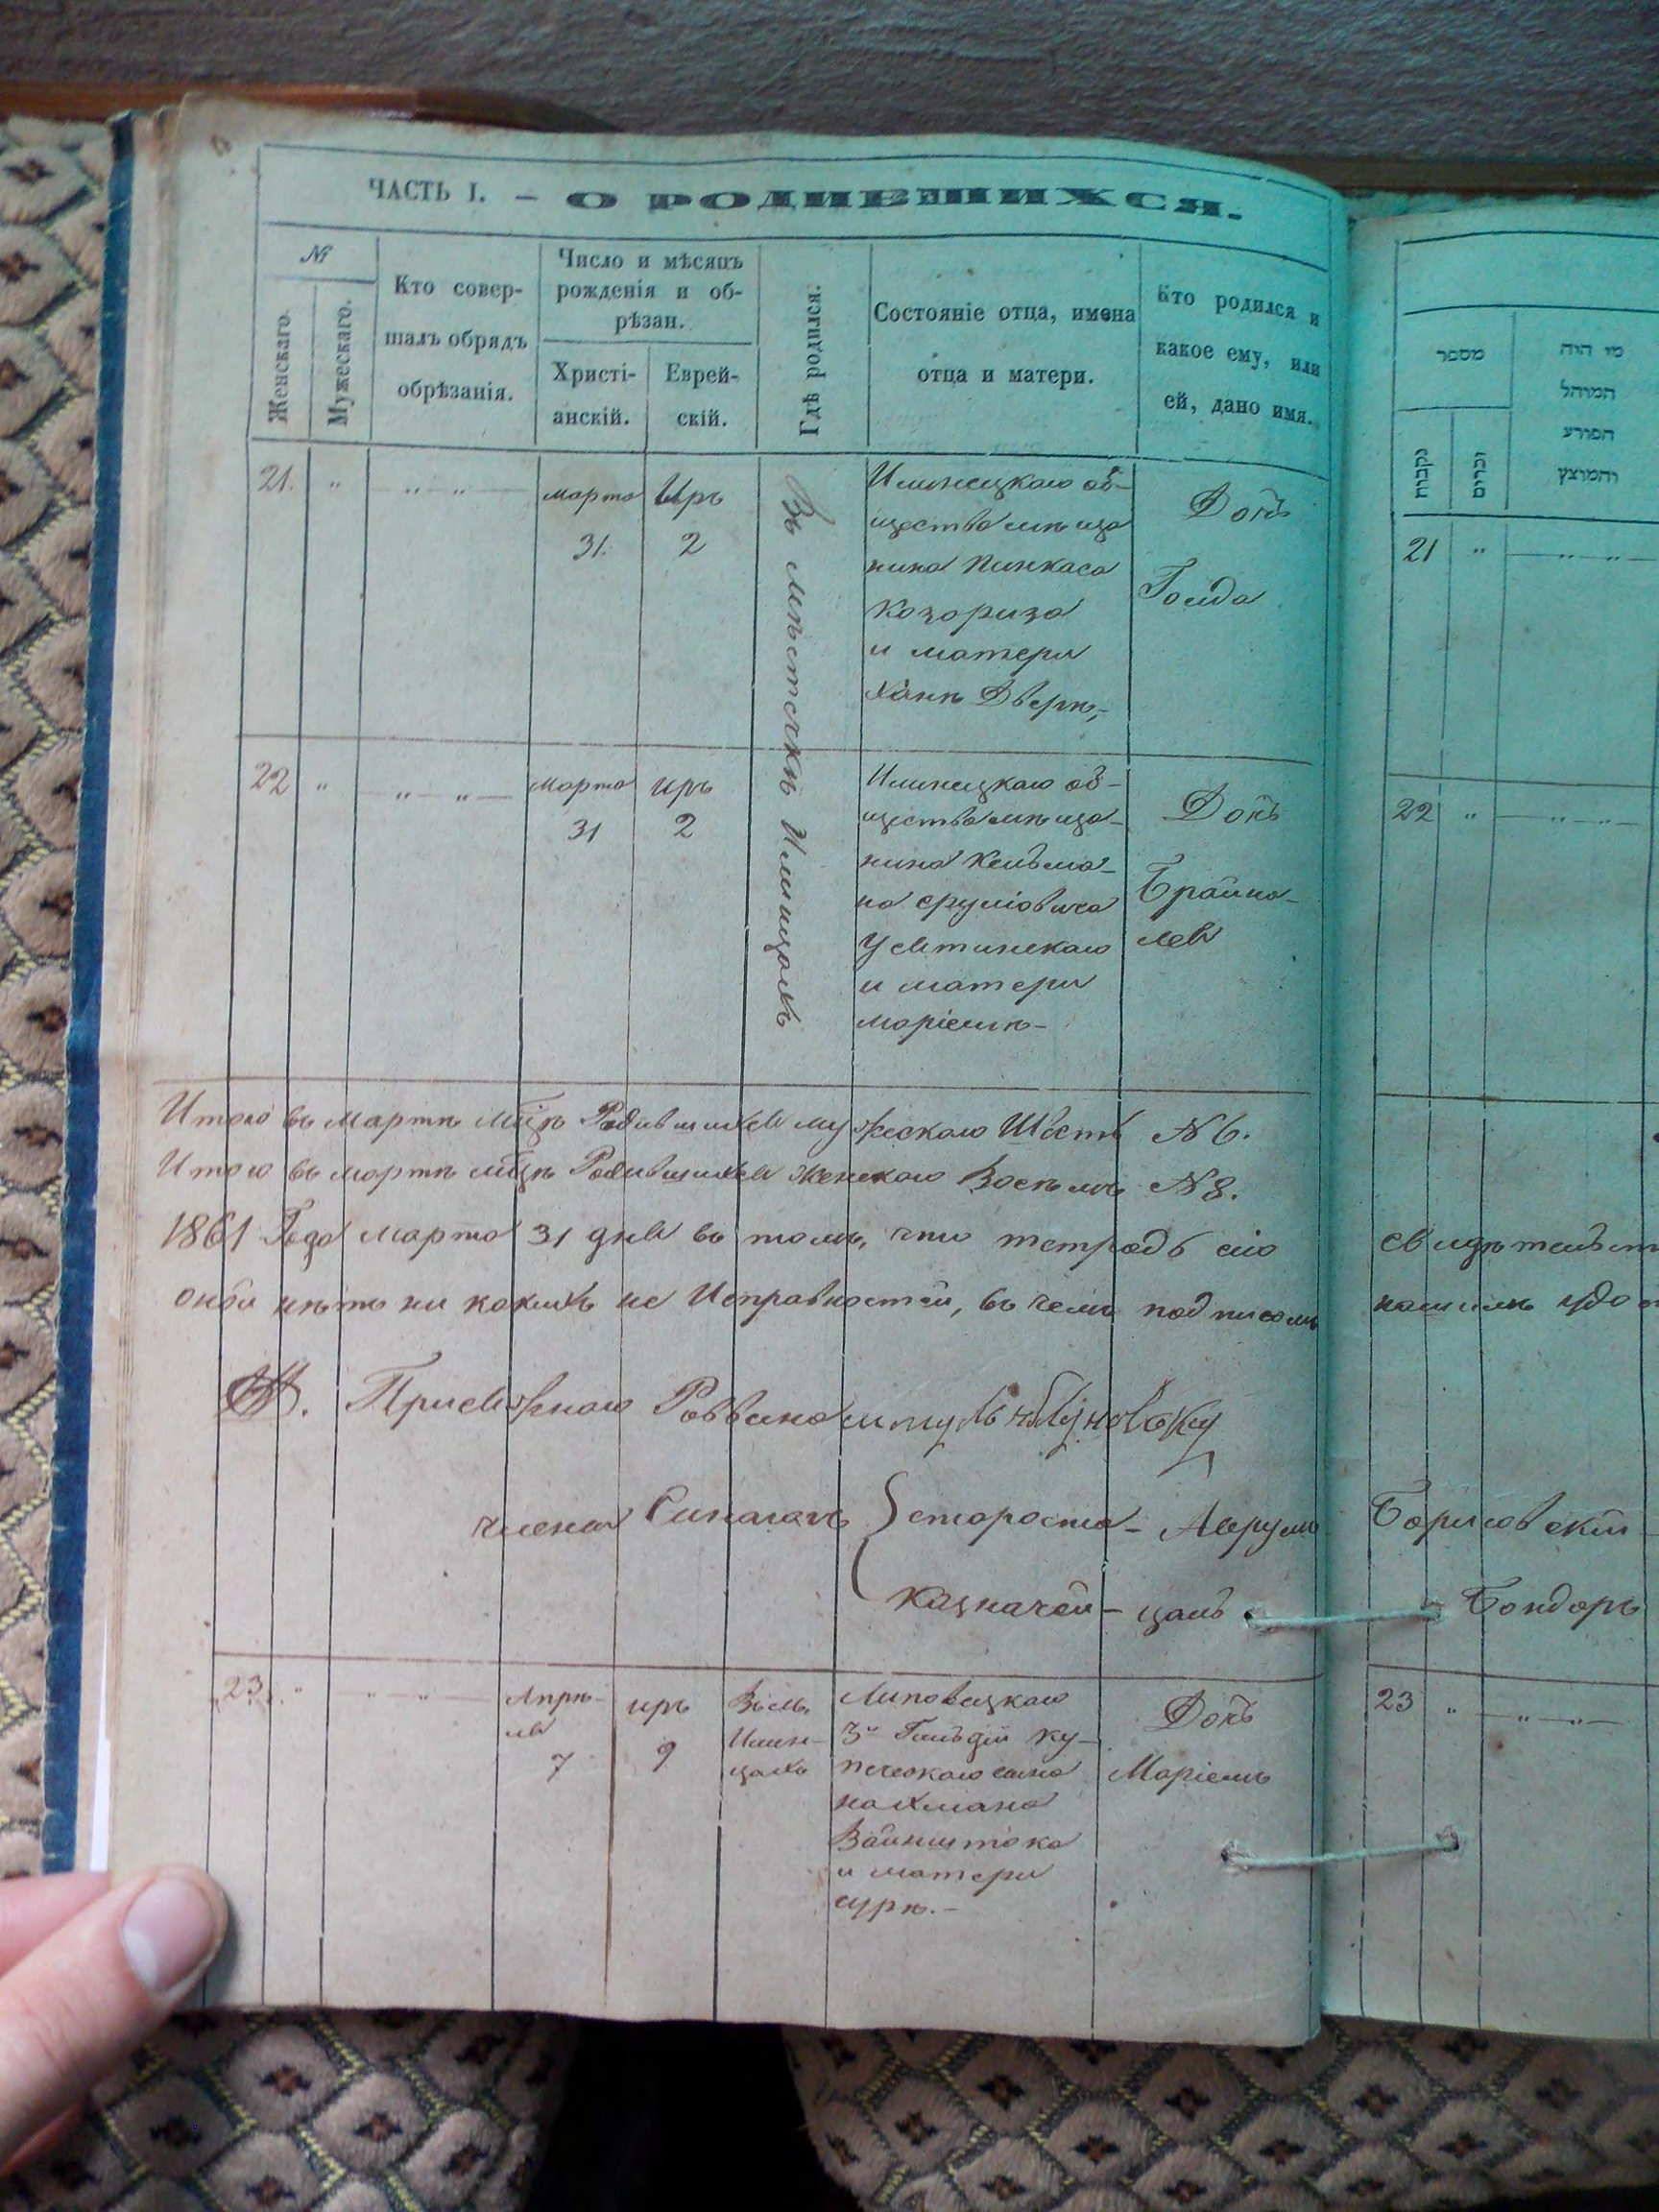 ЧАСТЬ I. — О РОДИВШИХСЯ.
№
Женскаго.
Мужескаго.
Кто совер-
шалъ обрядъ
обрѣзанія.
Число и мѣсяцъ
рожденія и об-
рѣзан.
Христі-
анскій.
Еврей-
скій.
Гдѣ родился.
Состояніе отца, имена
отца и матери.
Кто родился и
какое ему, или
ей, дано имя.
21. " " — " —
марта
31.
Иръ
2
Въ мѣстечкѣ Илинцахъ
Илинецкаго об-
щества мѣща
нина Пинкаса
Козориза
и матери
Ханы Дверы,-
Дочь
Голда
22 " — " — " —
марта
31
иръ
2
Илинецкаго об-
щества мѣща-
нина Кельма-
на Сруліовича
Устинскаго
и матери
Маріемы-
Дочь
Брайна-
лея
Итого въ Мартѣ мцѣ Родившихся мужескаго Шесть №6.
Итого въ мартѣ мцѣ Родившихся женскаго Восемь №8.
1861 Года марта 31 дня въ томъ, что тетрадь сію
оной нѣтъ ни какихъ не Исправностей, въ чемъ подписомъ
Присяжнаго Раввина
члены Синагогъ
староста - Аврумъ
казначей - Цаль
23. " " — " —
Апрѣ-
ля
7
иръ
9
Въ м.
Илин-
цахъ
Липовецкаго
3й Гильдіи ку-
печескаго сына
Нахмана
Вайнштока
и матери
Суры.-
Дочь
Маріемъ
מספר
נקבות
זכרים
מי היה
המוהל
הפורע
והמוצץ
21 " — " — " —
22 " — " — " —
нашимъ
Борисовскій -
Бондарь
23 " — " — " —